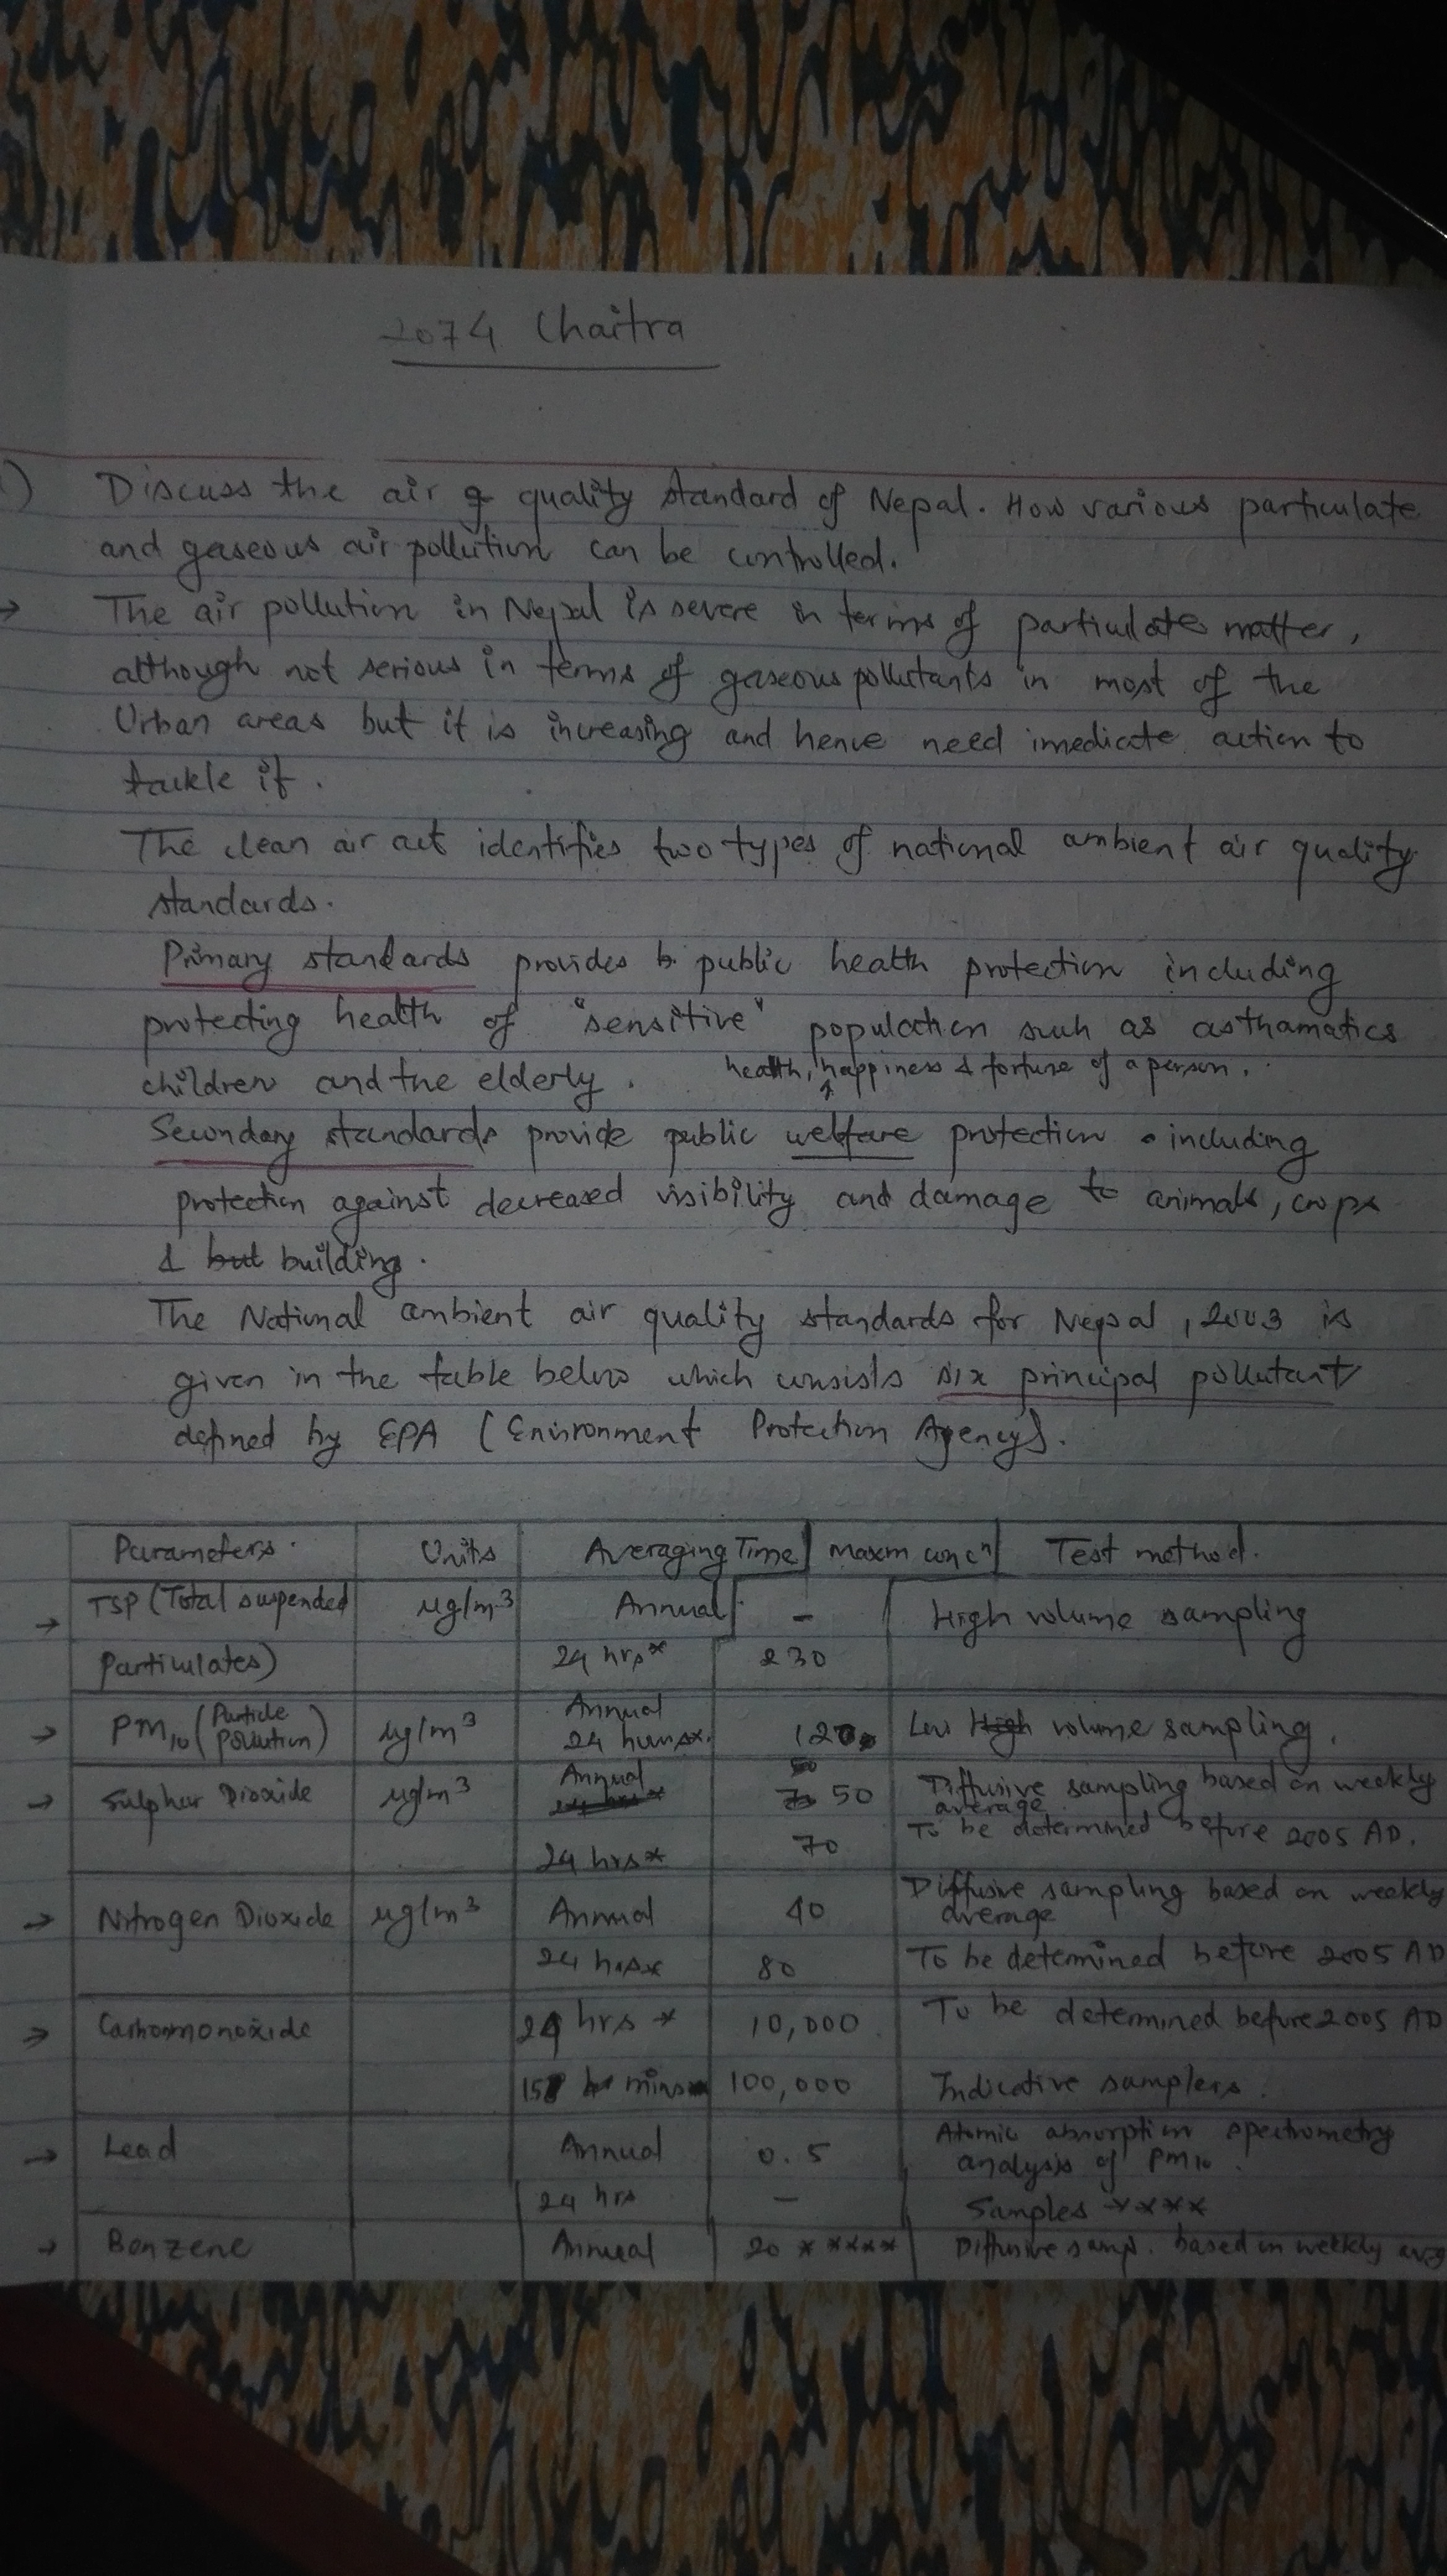 2074 Chaitra
) Discuss the air q quality standard of Nepal. How various particulate
and gaseous air pollution can be controlled.
→ The air pollution in Nepal is severe in terms of particulate matter,
although not serious in terms of gaseous pollutants in most of the
Urban areas but it is increasing and hence need imedicate action to
tackle it.
The clean air act identifies two types of national ambient air quality
standards.
Primary standards provides b. public health protection including
protecting health of "sensitive" population such as asthamatics
children and the elderly.
health, happiness & fortune of a person.
Secondary standards provide public welfare protection including
protection against decreased visibility and damage to animals, crops
& but building.
The National ambient air quality standards for Nepal, 2003 is
given in the table below which consists six principal pollutant
defined by EPA (Environment Protection Agency).
Parameters. Units Averaging Time Maxm concn Test method.
→ TSP (Total suspended μg/m3 Annual - High volume sampling
Particulates) 24 hrs* 230
→ PM10 (Particle Pollution) μg/m3 Annual
24 hours*. 120 Low High volume sampling.
→ Sulphur Dioxide μg/m3 Annual 50 Diffusive sampling based on weekly
average
24 hrs* 70 To be determined before 2005 AD.
→ Nitrogen Dioxide μg/m3 Annual 40 Diffusive sampling based on weekly
average
24 hrs* 80 To be determined before 2005 AD
→ Carbonmonoxide 24 hrs * 10,000 To be determined before 2005 AD
15 mins 100,000 Indicative samplers.
→ Lead Annual 0.5 Atomic absorption spectrometry
analysis of PM10.
24 hrs - Samples ****
→ Benzene Annual 20 ***** Diffusive samp. based on weekly avg